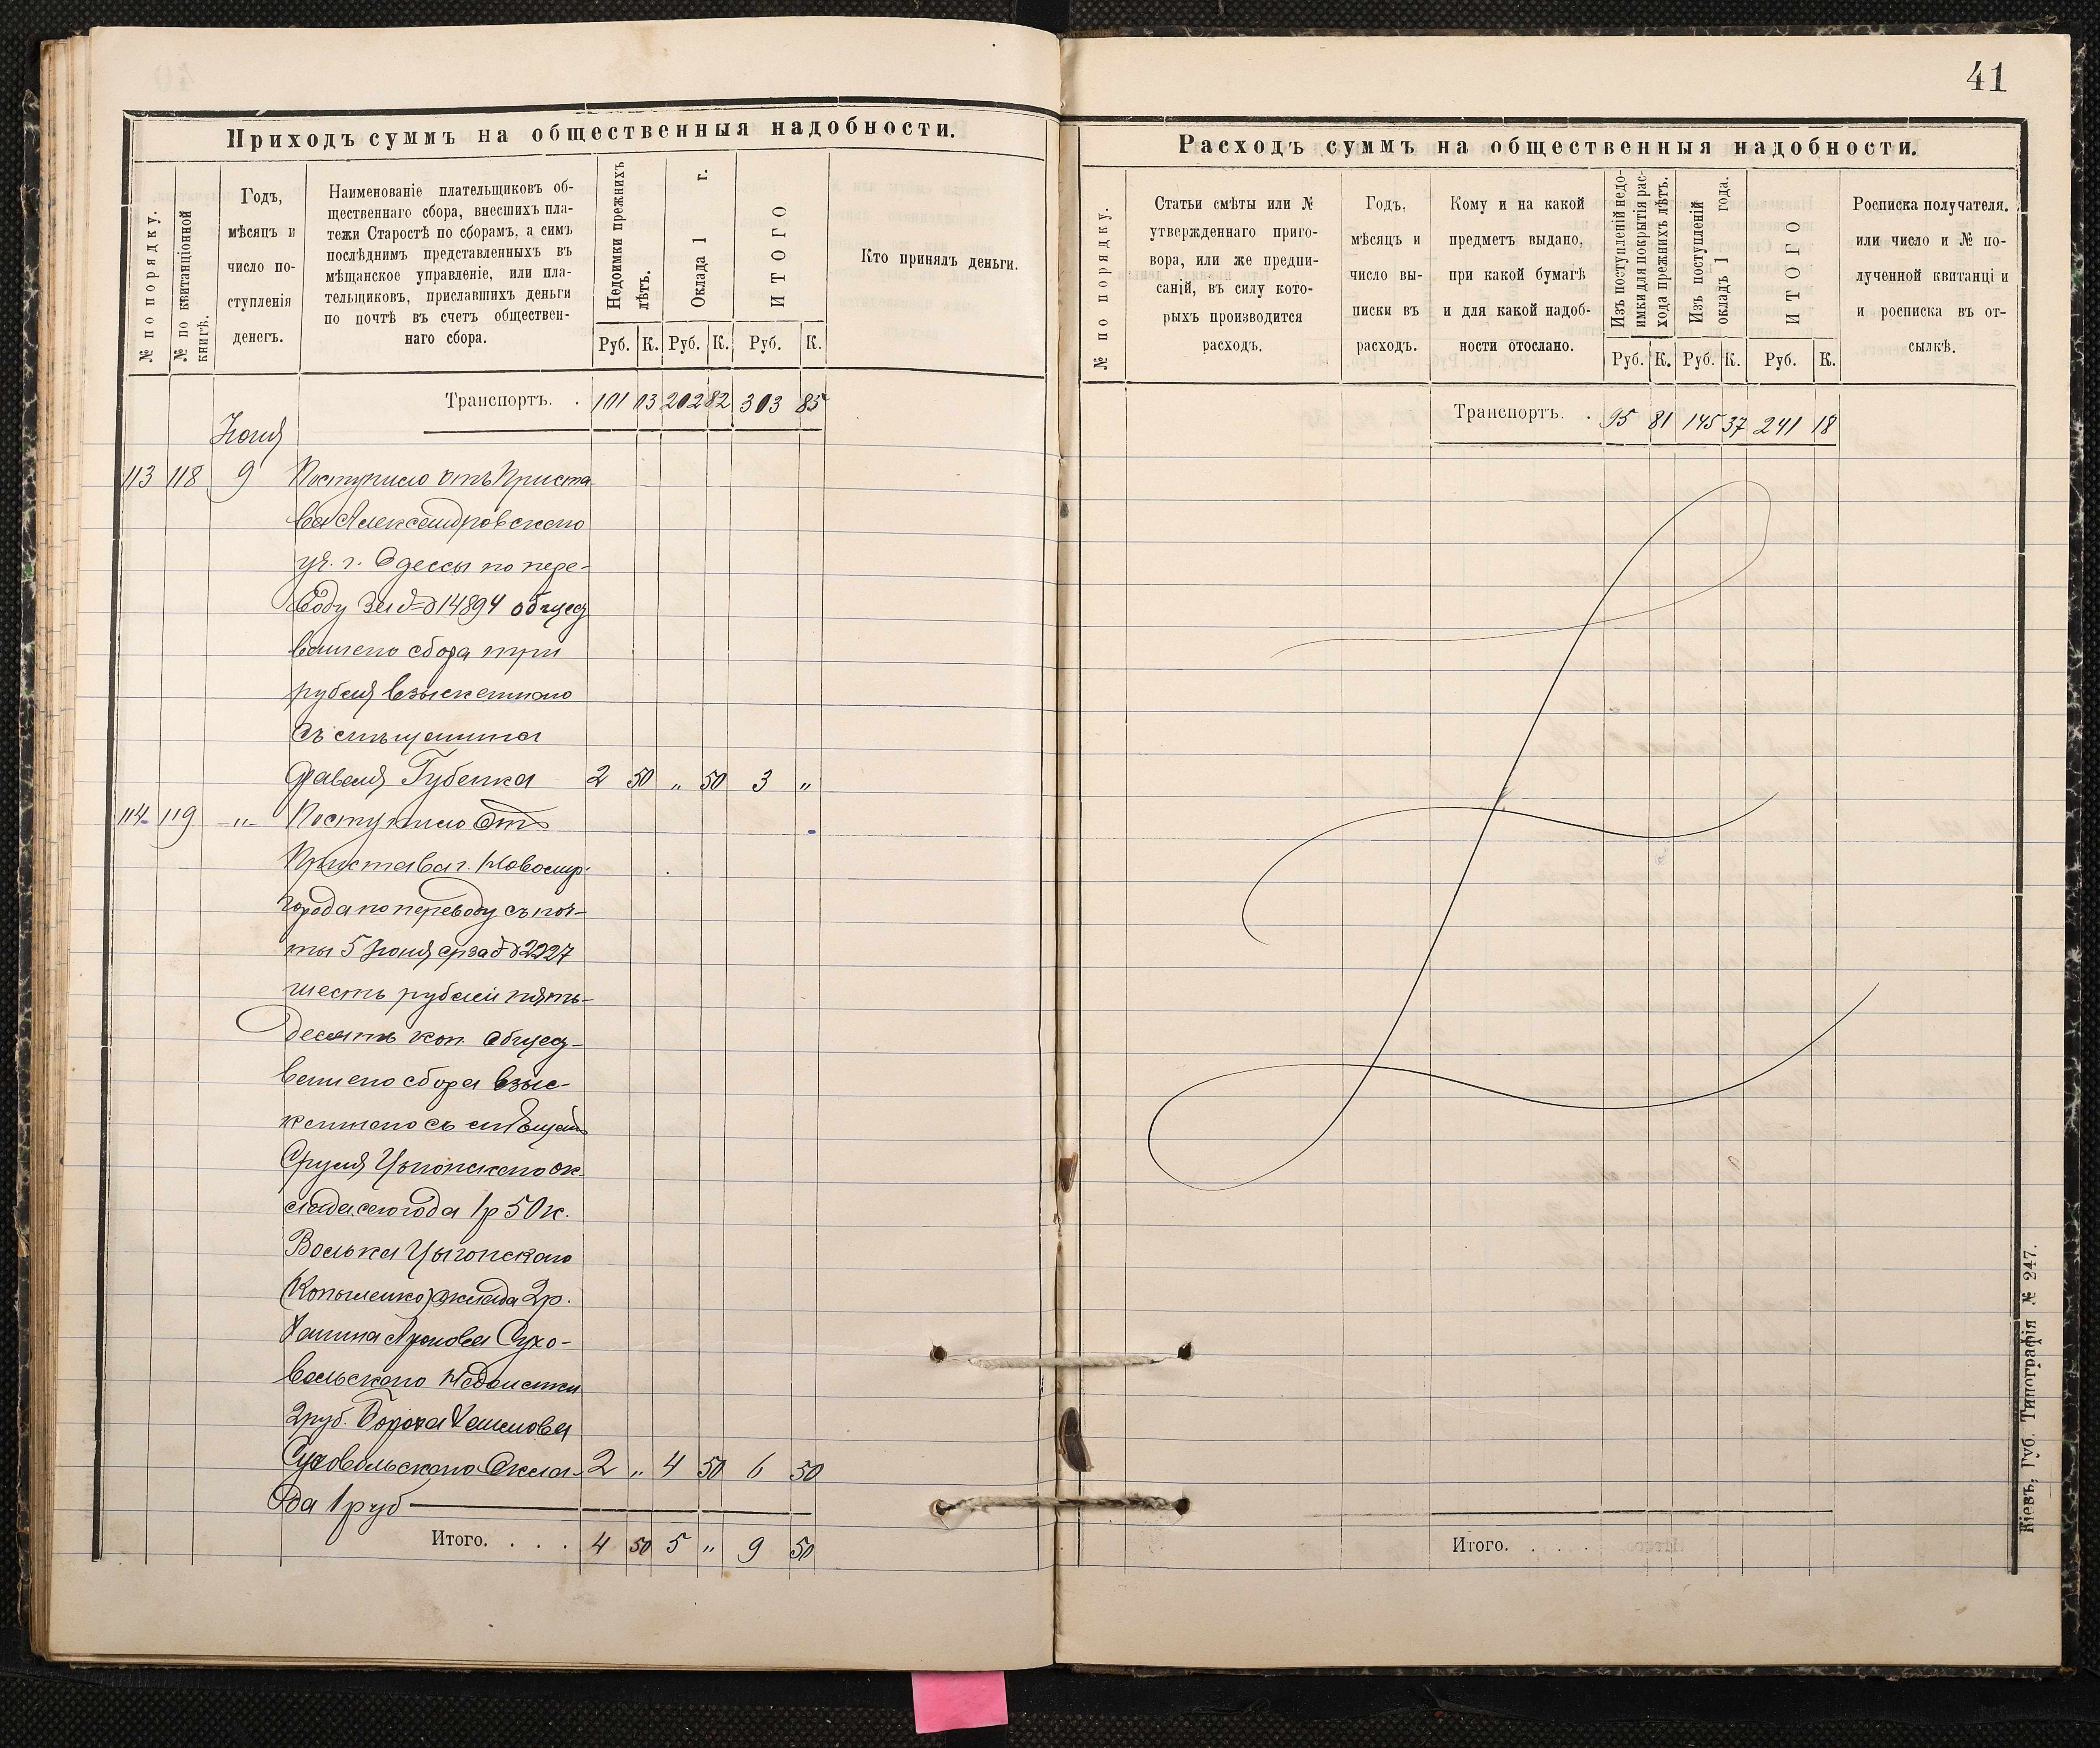 Приходъ суммъ на общественныя надобности.
№ по порядку.
№ по квитанціонной книгѣ.
Годъ,
мѣсяцъ и
число по-
ступленія
денегъ.
Наименованіе плательщиковъ об-
щественнаго сбора, внесшихъ пла-
тежи Старостѣ по сборамъ, а симъ
послѣднимъ представленныхъ въ
мѣщанское управленіе, или пла-
тельщиковъ, приславшихъ деньги
по почтѣ въ счетъ обществен-
наго сбора.
Недоимки прежнихъ
лѣтъ.
Оклада 1 г.
ИТОГО
Кто принялъ деньги.
Руб. К. Руб. К. Руб. К.
Транспортъ. . 101 03 202 82 303 85
Іюня
113 118 9 Поступило отъ Приста
ва Александровскаго
уч. г. Одессы по пере-
воду за № 14894 общес
веннаго сбора три
рубля взысканнаго
съ мѣщанина
Фавеля Губенка 2 50 „ 50 3 „
114 119 -„- Поступило отъ
Пристава г. Новомир-
города по переводу съ поч-
ты 5 Іюня за № 2227
шесть рублей пять-
десятъ коп. общес-
веннаго сбора взыс-
каннаго съ мѣщан
Сруля Цыгонскаго ок-
лада сего года 1р 50к.
Волька Цыгонскаго
оклада 2р.
Сухо-
вольскаго недоимки
2руб.
Суховольскаго Окла- 2 „ 4 50 6 50
да 1 руб
Итого. . . . 4 50 5 „ 9 50
41
Расходъ суммъ на общественныя надобности.
№ по порядку.
Статьи смѣты или №
утвержденнаго приго-
вора, или же предпи-
саній, въ силу кото-
рыхъ производится
расходъ.
Годъ,
мѣсяцъ и
число вы-
писки въ
расходъ.
Кому и на какой
предметъ выдано,
при какой бумагѣ
и для какой надоб-
ности отослано.
Изъ поступленій недо-
имки для покрытія рас-
хода прежнихъ лѣтъ.
Изъ поступленій
окладъ 1 года.
ИТОГО
Росписка получателя.
или число и № по-
лученной квитанці и
и росписка въ от-
сылкѣ.
Руб. К. Руб. К. Руб. К.
Транспортъ. . 95 81 145 37 241 18
Итого. . . .
Кіевъ, Губ. Типографія № 247.